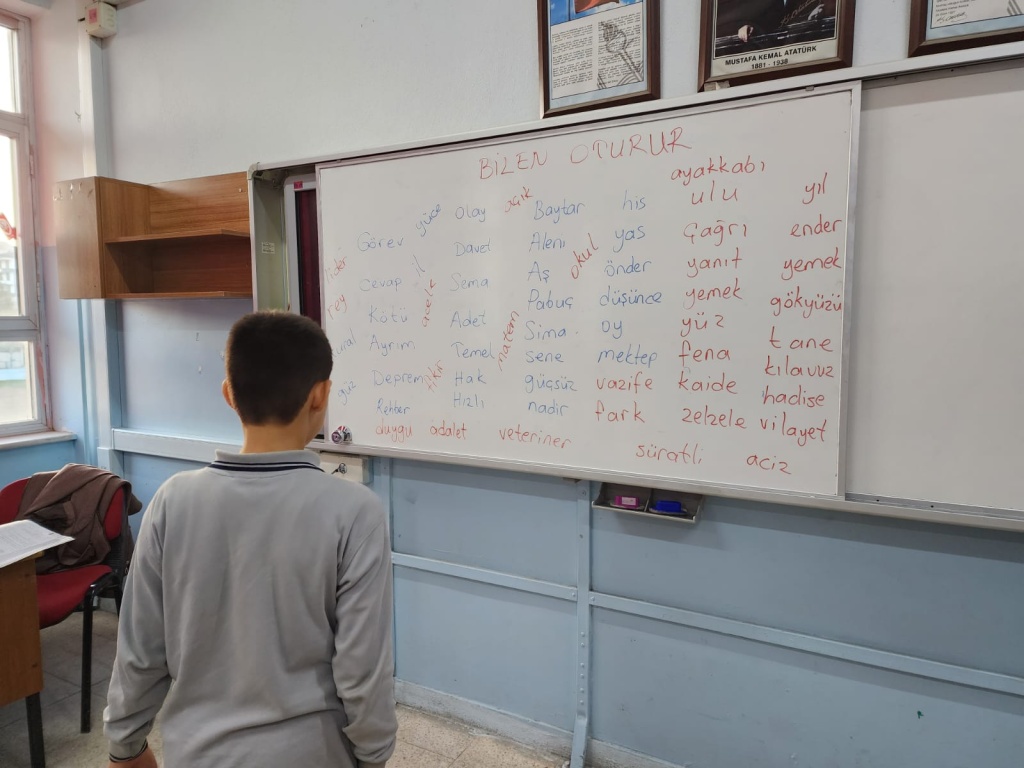 MUSTAFA KEMAL ATATÜRK
1881 - 1938
BİLEN OTURUR
ayakkabı
güce Olay açık Baytar his ulu yıl
Görev Davet Aleni okul yas çağrı ender
cevap il Sema Aş önder yanıt yemek
rey Kötü Adet Pabuç düşünce yemek gökyüzü
Ayrım Temel matem Sima oy yüz tane
Deprem Hak sene mektep fena kılavuz
Rehber Hızlı güçsüz vazife kaide hadise
nadir fark zelzele vilayet
duygu adalet veteriner süratli aciz